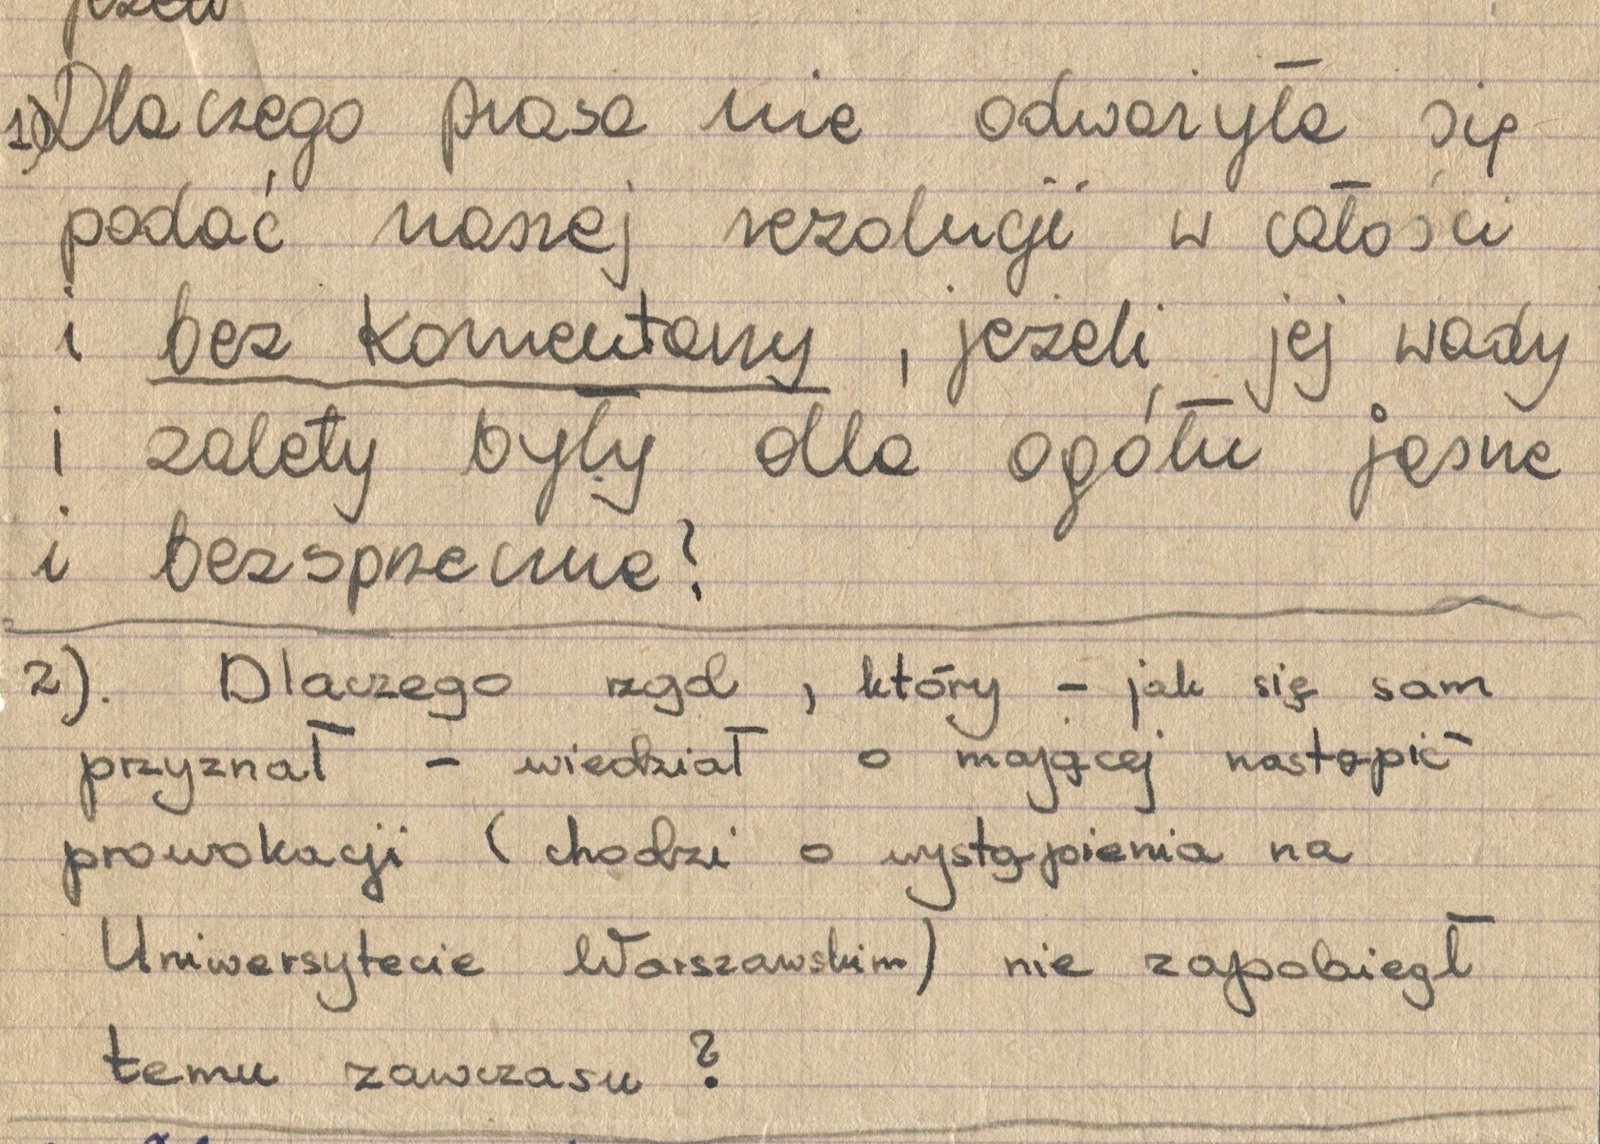 1) Dlaczego prasa nie odważyła się
podać naszej rezolucji w całości
i bez komentarzy, jeżeli jej wady
i zalety były dla ogółu jasne
i bezsprzeczne?
2). Dlaczego rząd, który - jak się sam
przyznał - wiedział o mającej nastąpić
prowokacji (chodzi o wystąpienia na
Uniwersytecie Warszawskim) nie zapobiegł
temu zawczasu?